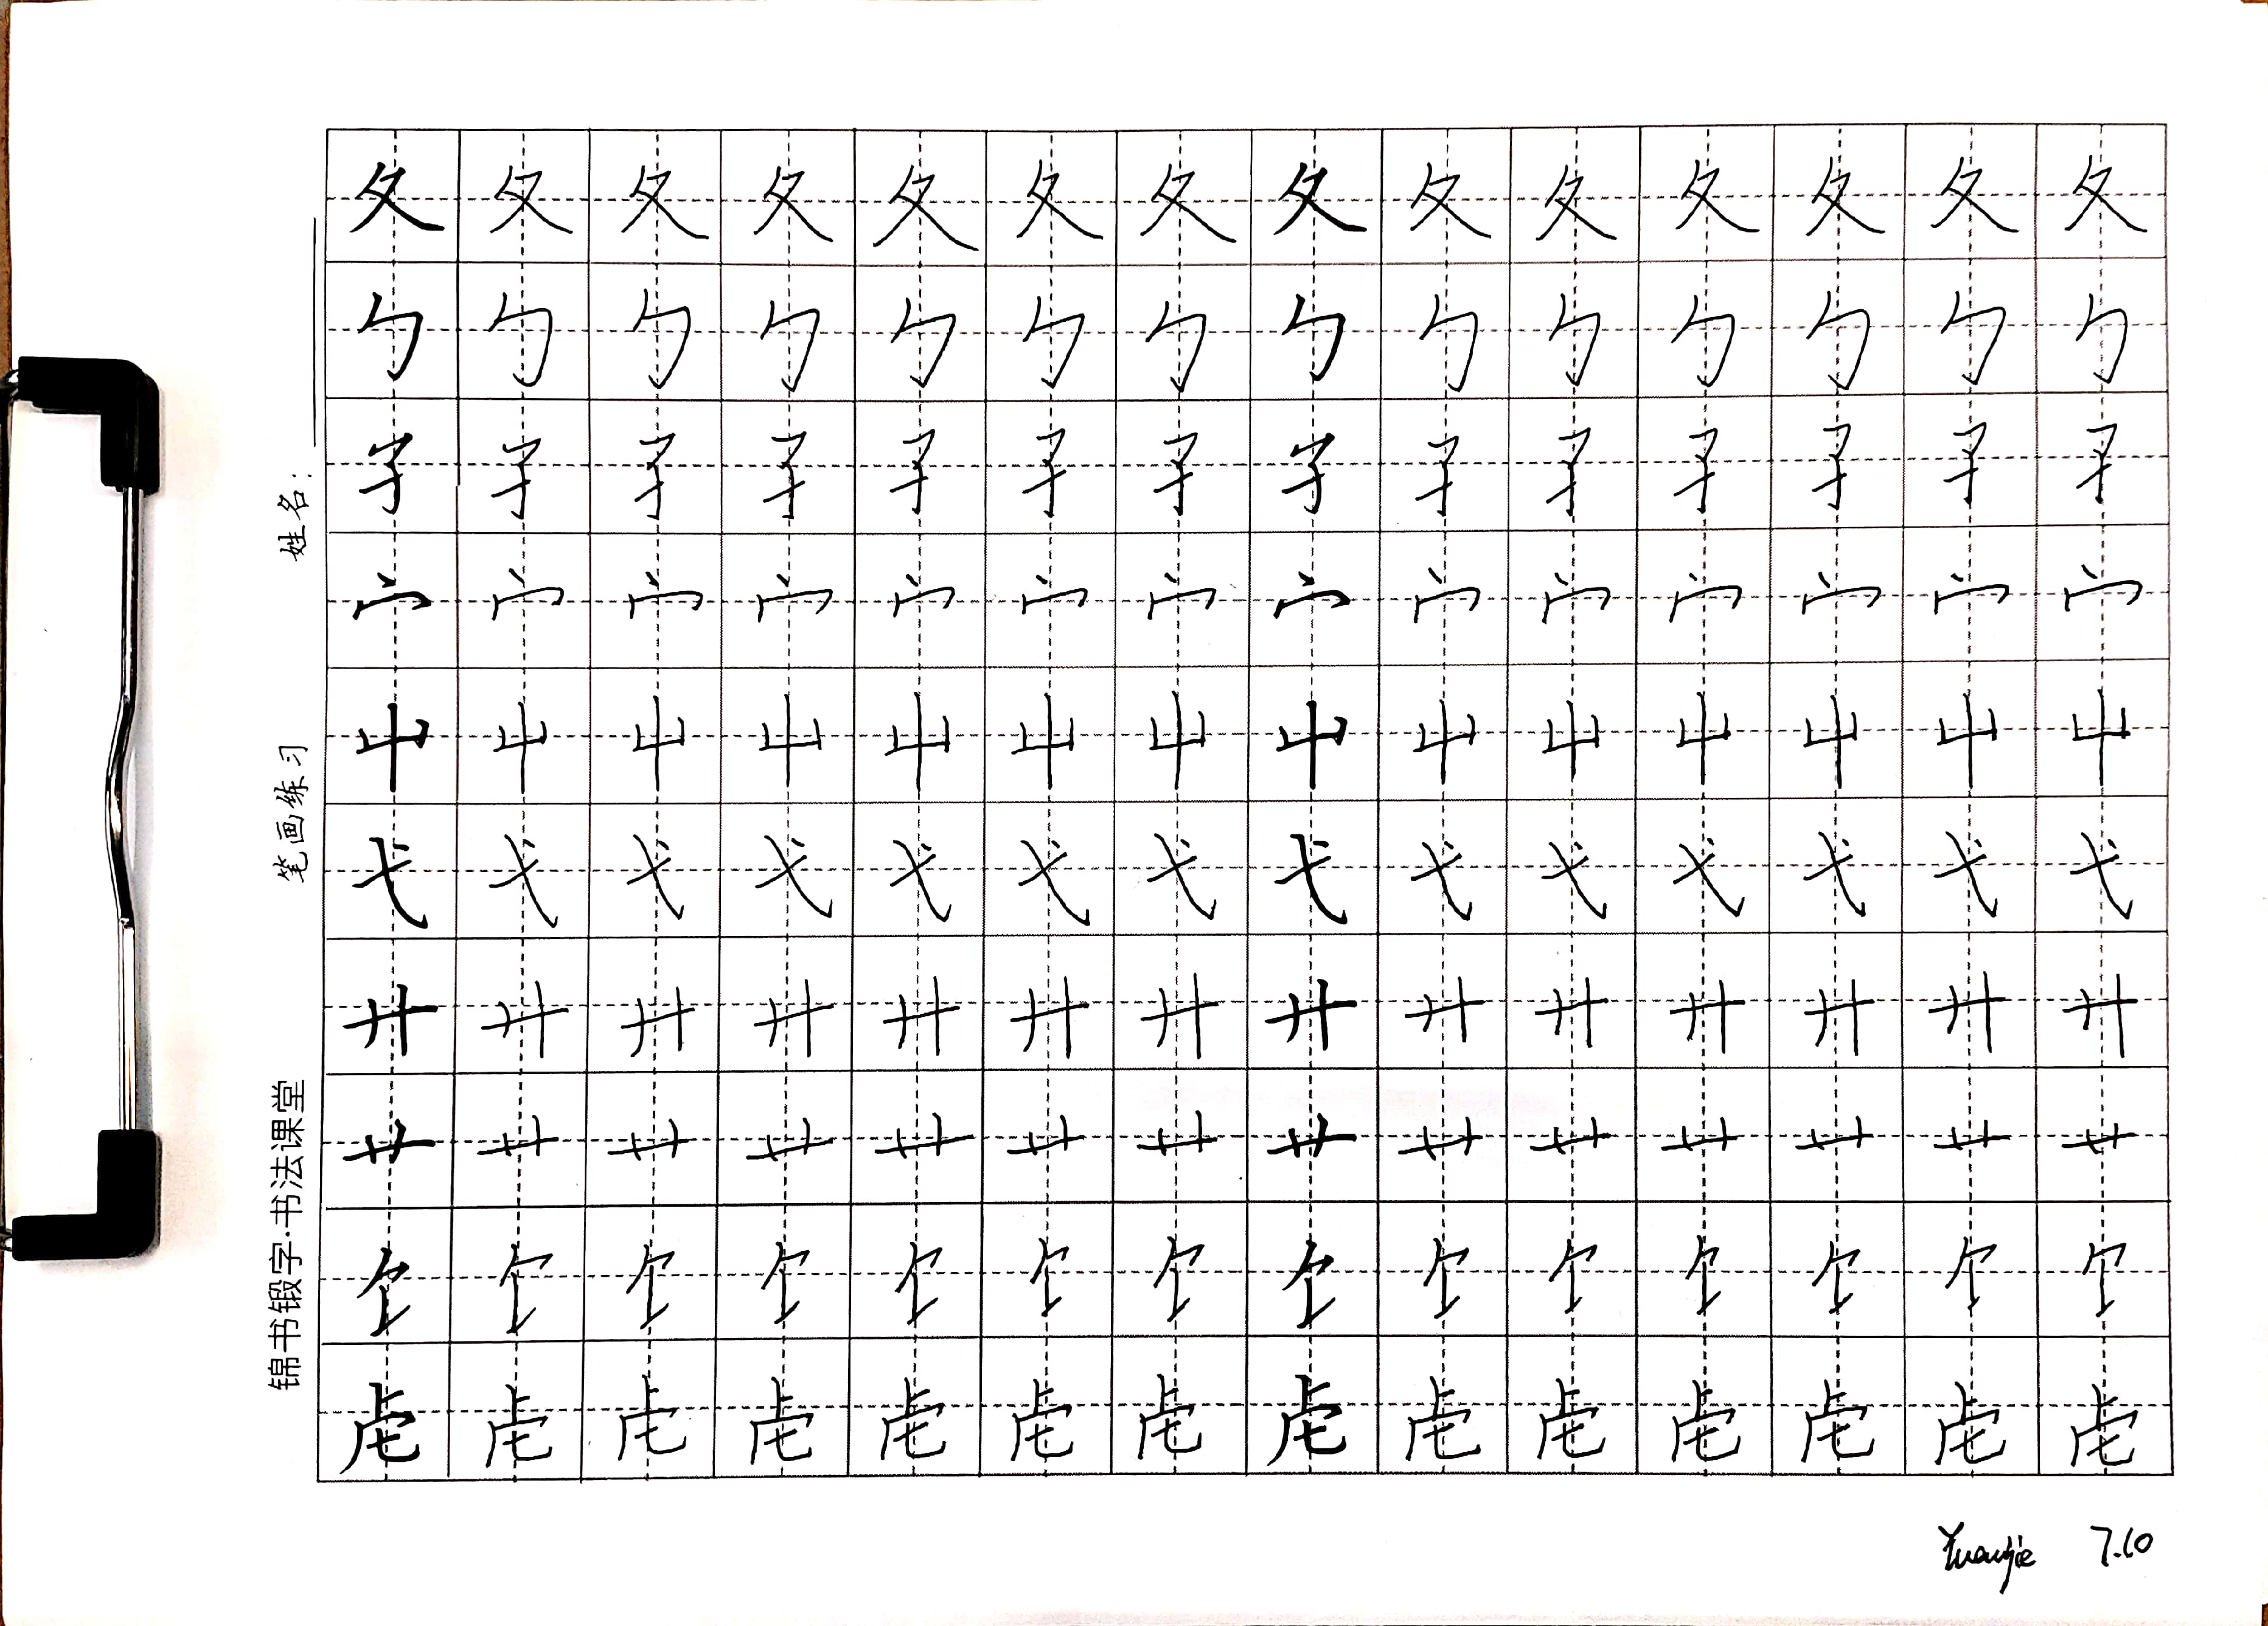 锦书锻字·书法课堂 笔画练习 姓名：
夂夂夂夂夂夂夂夂夂夂夂夂夂夂
勹勹勹勹勹勹勹勹勹勹勹勹勹勹
孑孑孑孑孑孑孑孑孑孑孑孑孑孑
宀宀宀宀宀宀宀宀宀宀宀宀宀宀
屮屮屮屮屮屮屮屮屮屮屮屮屮屮
弋弋弋弋弋弋弋弋弋弋弋弋弋弋
廾廾廾廾廾廾廾廾廾廾廾廾廾廾
艹艹艹艹艹艹艹艹艹艹艹艹艹艹
饣饣饣饣饣饣饣饣饣饣饣饣饣饣
虍虍虍虍虍虍虍虍虍虍虍虍虍虍
Yuanjie 7.10